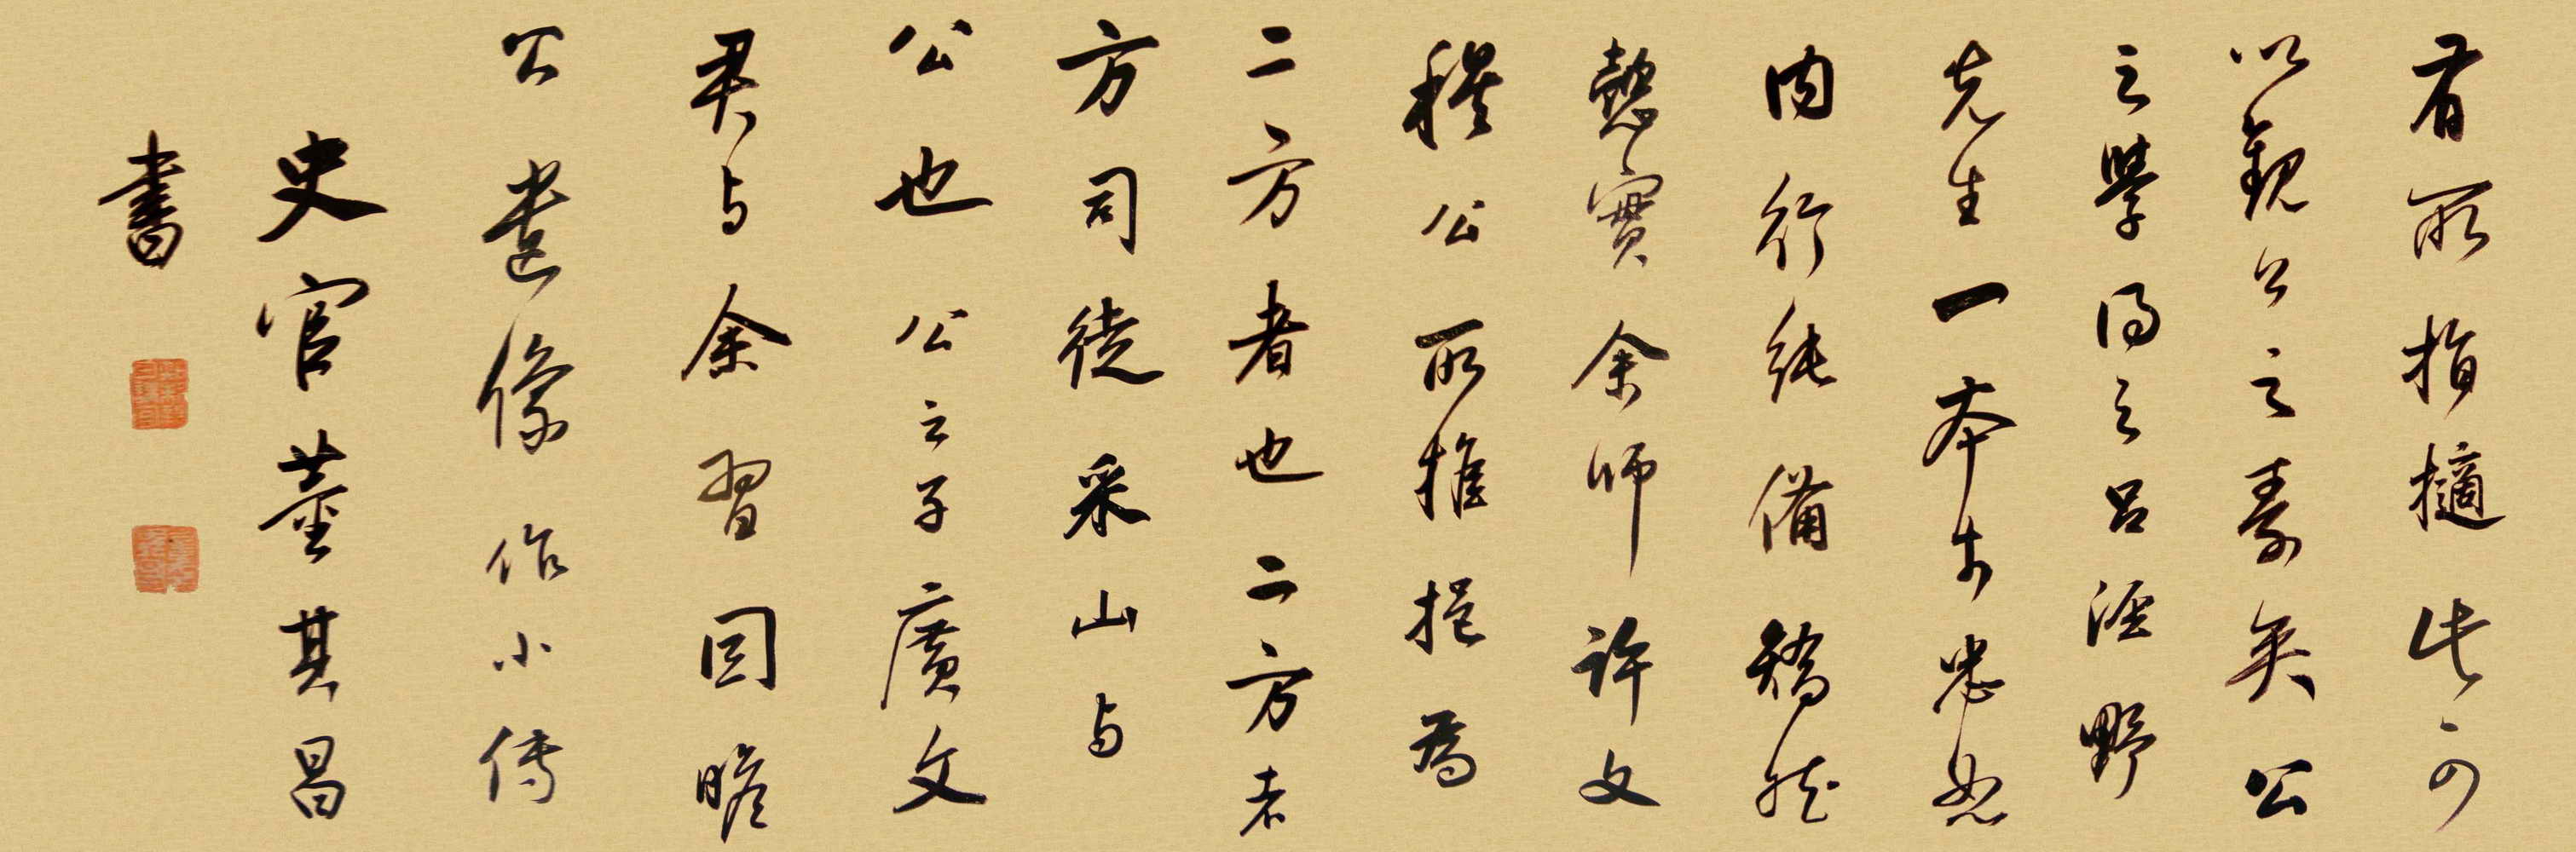 有所指摘此可
以觀公之素矣公
之學得之呂涇野
先生一本於忠恕
內行純備矯然
愨實余師許文
穆公所推挹為
二方者也二方者
方司徒采山与
公也公之子廣文
君与余習因瞻
公遺像作小傳
史官董其昌
書